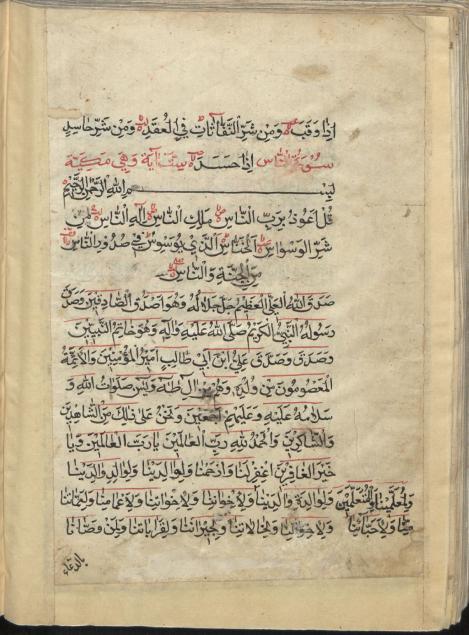 اِذَا وَقَبَ وَمِنْ شَرِّ النَّفَّاثَاتِ فِي الْعُقَدِ وَمِنْ شَرِّ حَاسِدٍ
سُورَةُ النَّاس اِذَا حَسَدَ آيَة وَهِيَ مَكِيَّة
بِسْمِ اللهِ الرَّحْمٰنِ الرَّحِيمِ
قُلْ اَعُوذُ بِرَبِّ النَّاسِ مَلِكِ النَّاسِ اِلٰهِ النَّاسِ مِنْ
شَرِّ الْوَسْوَاسِ الْخَنَّاسِ الَّذِي يُوَسْوِسُ فِي صُدُورِ النَّاسِ
مِنَ الْجِنَّةِ وَالنَّاسِ
صَدَقَ اللهُ الْعَلِيُّ الْعَظِيمُ جَلَّ جَلَالُهُ وَهُوَ اَصْدَقُ الصَّادِقِينَ وَصَدَقَ
رَسُولُهُ النَّبِيُّ الْكَرِيمُ صَلَّى اللهُ عَلَيْهِ وَآلِهِ وَهُوَ خَاتِمُ النَّبِيِّينَ
وَصَدَقَ وَصَدَّقَ عَلِيُّ ابْنُ اَبِي طَالِبٍ اَمِيرُ الْمُؤْمِنِينَ وَالْاَئِمَّةُ
الْمَعْصُومُونَ مِنْ وُلْدِهِ وَهُمْ آلِ طٰهٰ وَيٰسٓ صَلَوَاتُ اللهِ وَ
سَلَامُهُ عَلَيْهِ وَعَلَيْهِمْ اَجْمَعِينَ وَنَحْنُ عَلٰى ذٰلِكَ مِنَ الشَّاهِدِينَ
وَالشَّاكِرِينَ وَالْحَمْدُ لِلّٰهِ رَبِّ الْعَالَمِينَ يَا رَبَّ الْعَالَمِينَ وَيَا
خَيْرَ الْغَافِرِينَ اغْفِرْ لَنَا وَارْحَمْنَا وَلِوَالِدِينَا وَلِوَالِدِ وَالِدِينَا
وَلِمُعَلِّمِينَا وَالْمُتَعَلِّمِينَ وَلِوَالِدَةِ وَالِدِينَا وَلِاَخَوَاتِنَا وَلِاِخْوَانِنَا وَلِاَعْمَامِنَا وَلِعَمَّاتِنَا
وَلِاَحِبَّائِنَا وَلِاَخْوَالِنَا وَلِخَالَاتِنَا وَلِجِيرَانِنَا وَلِقَرَابَاتِنَا وَلِمَنْ وَصَّانَا
بالدعاء